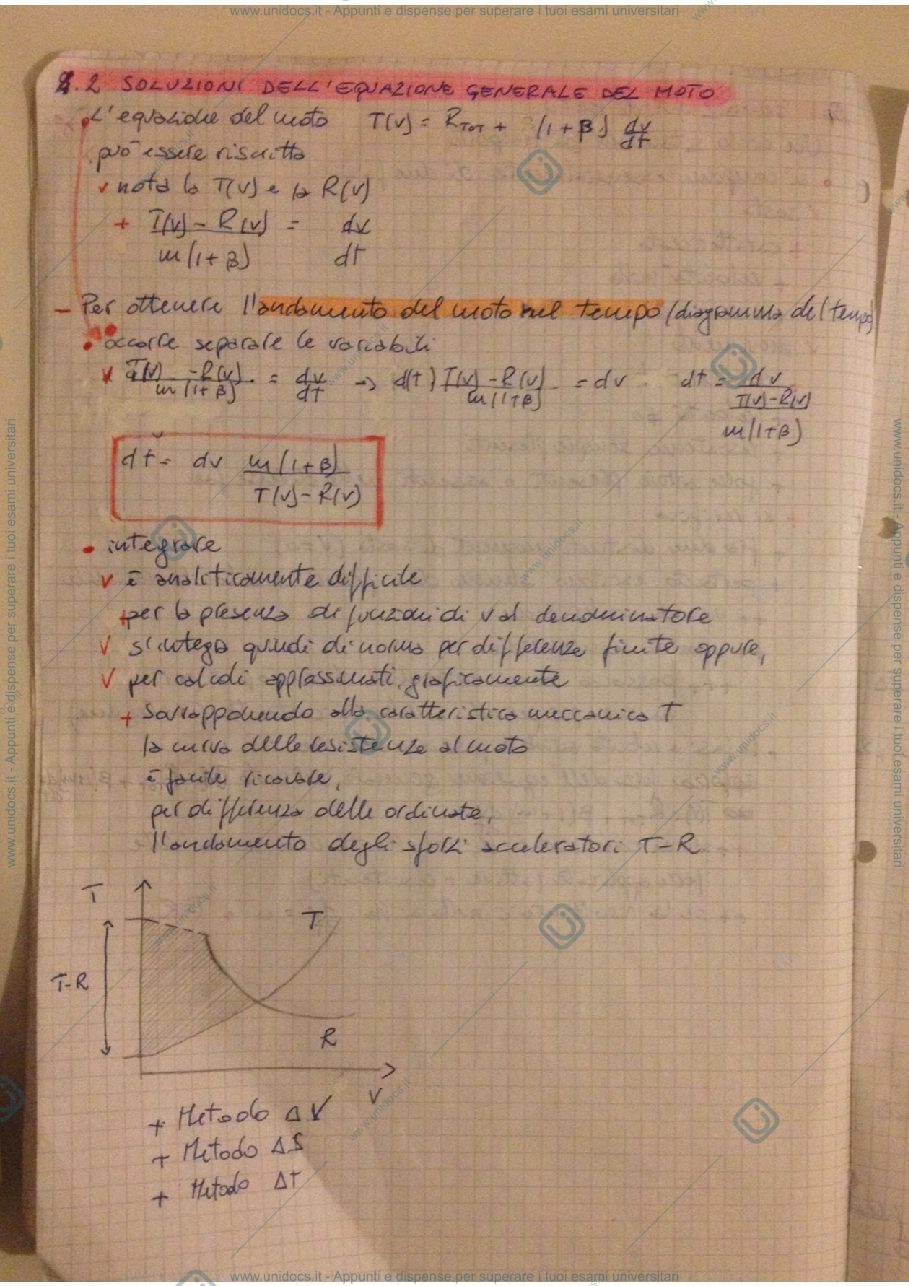 www.unidocs.it - Appunti e dispense per superare i tuoi esami universitari
2.2 SOLUZIONI DELL'EQUAZIONE GENERALE DEL MOTO
L'equazione del moto T(v) = RTOT + (1+β) dv/dt
può essere riscritta
v nota la T(v) e la R(v)
+ T(v) - R(v) / m(1+β) = dv/dt
- Per ottenere l'andamento del moto nel tempo (diagramma del tempo)
• occorre separare le variabili
v T(v) - R(v) / m(1+β) = dv/dt → d(t) T(v) - R(v) / m(1+β) = dv dt = dv / T(v)-R(v) / m(1+β)
dt = dv m(1+β) / T(v)-R(v)
• integrare
v è analiticamente difficile
+ per la presenza di funzioni di v al denominatore
v si integra quindi di norma per differenze finite oppure,
v per calcoli approssimati, graficamente
+ Sovrapponendo alla caratteristica meccanica T
la curva delle resistenze al moto
è facile ricavare,
per differenza delle ordinate,
l'andamento degli sforzi acceleratori T-R
T
T
T-R
R
V
+ Metodo ΔV
+ Metodo ΔS
+ Metodo ΔT
www.unidocs.it - Appunti e dispense per superare i tuoi esami universitari
www.unidocs.it - Appunti e dispense per superare i tuoi esami universitari
www.unidocs.it - Appunti e dispense per superare i tuoi esami universitari